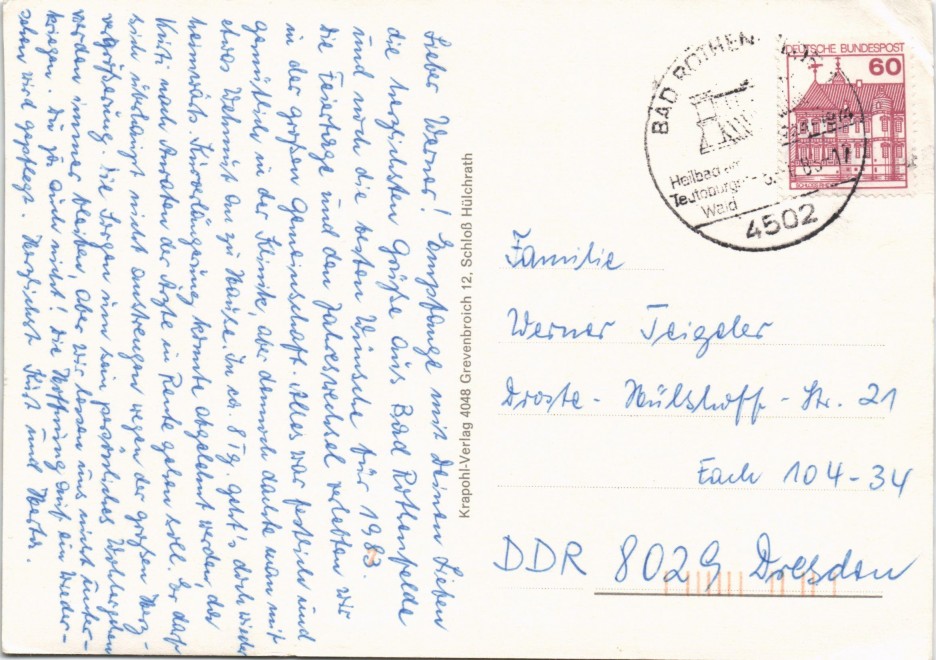 Lieber Werner! Empfange mit Deinen Lieben
die herzlichsten Grüße aus Bad Rothenfelde
und noch die besten Wünsche für 1983.
Die Feiertage und den Jahreswechsel verlebten wir
in der großen Gemeinschaft. Alles war festlich und
gemütlich in der Klinik, aber dennoch dachte man mit
etwas Wehmut an zu Hause. In ca. 8 Tg. geht's doch wieder
heimwärts. Kurverlängerung konnte abgelehnt werden, da
Kurti nach Anraten der Ärzte in Rente gehen soll. Er darf
sich überhaupt nicht anstrengen wegen der großen Herz-
vergrößerung. Die Sorgen um sein persönliches Wohlergehen
werden immer bleiben, aber wir lassen uns nicht unter-
kriegen. Du ja auch nicht! Die Hoffnung auf ein Wieder-
sehn wird gepflegt. Herzlichst Kurt und Herta.
Krapohl-Verlag 4048 Grevenbroich 12, Schloß Hülchrath
DEUTSCHE BUNDESPOST
60
BAD ROTHEN
Heilbad
Teutoburger
Wald
4502
Familie
Werner Teigeler
Droste-Hülshoff-Str. 21
Fach 104-34
DDR 8029 Dresden